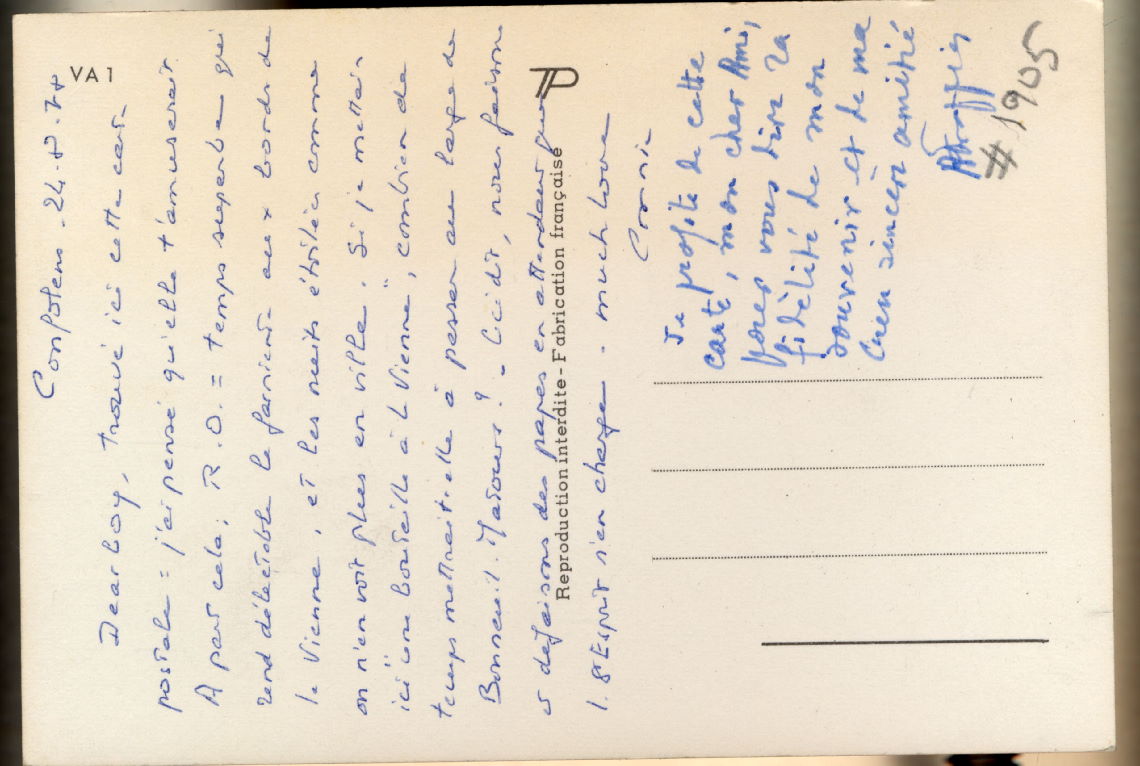 VA1
Confolens - 24.8.74
Dear boy, trouvé ici cette carte
postale = j'ai pensé qu'elle t'amuserait
A part cela: R.A.S. = temps superbe qui
rend délectable le farniente aux bords de
la Vienne, et les nuits étoilées comme
on n'en voit plus en ville. Si je mettais
ici une bouteille à la Vienne, combien de
temps mettrait-elle à passer au large de
Bonneuil-Matours? - Ceci dit, nous faisons
et défaisons des pages en attendant que
l. St Esprit s'en charge - much love
Connie
Je profite de cette
carte, mon cher Ami,
pour vous dire la
fidélité de mon
souvenir et de ma
bien sincère amitié
# 1905
Reproduction interdite - Fabrication française